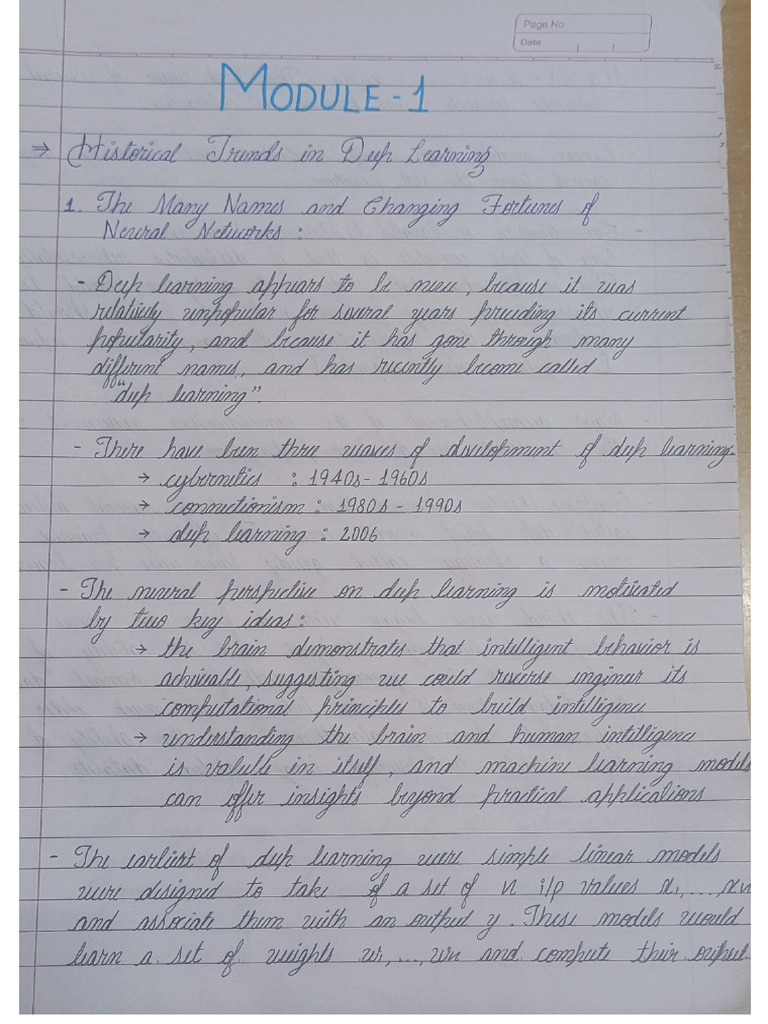 Page No.
Date
MODULE - 1
→ Historical Trends in Deep Learning
1. The Many Names and Changing Fortunes of
Neural Networks :
- Deep learning appears to be new, because it was
relatively unpopular for several years preceding its current
popularity, and because it has gone through many
different names, and has recently become called
"deep learning".
- There have been three waves of development of deep learning.
→ cybernetics : 1940s - 1960s
→ connectionism : 1980s - 1990s
→ deep learning : 2006
- The neural perspective on deep learning is motivated
by two key ideas :
→ the brain demonstrates that intelligent behavior is
achieveable, suggesting we could reverse engineer its
computational principles to build intelligence
→ understanding the brain and human intelligence
is valuble in itself, and machine learning models
can offer insights beyond practical applications
- The earliest of deep learning were simple linear models
were designed to take of a set of n i/p values x1, ..., xn
and associate them with an output y. These models would
learn a set of weights w1, ..., wn and compute their output